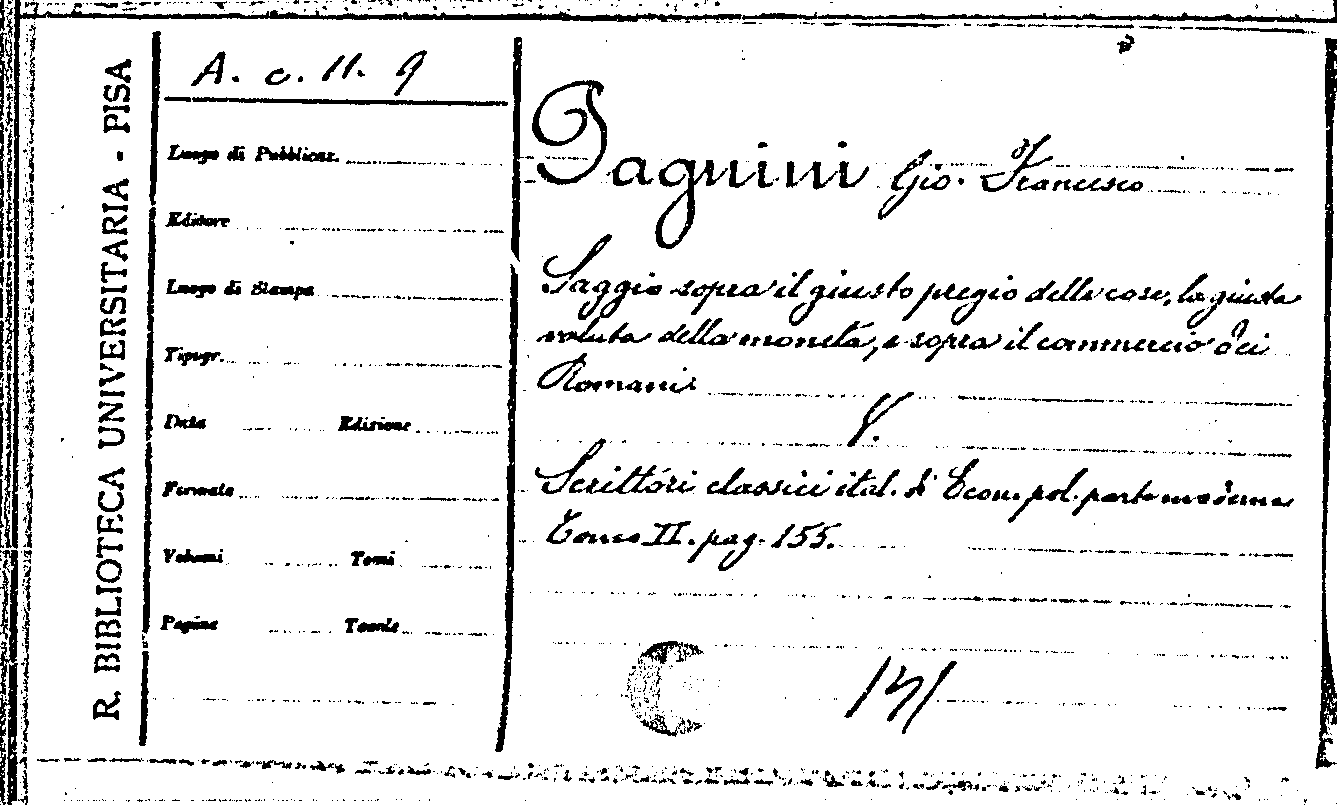 R. BIBLIOTECA UNIVERSITARIA - PISA
A. c. 11. 9
Luogo di Pubblicaz.
Editore
Luogo di Stampa
Tipogr.
Data Edizione
Formato
Volumi Tomi
Pagine Tavole
Pagnini Gio. Francesco
Saggio sopra il giusto pregio delle cose, la giusta
valuta della moneta, e sopra il commercio dei
Romani
Scrittori classici ital. di Econ. pol. parte moderna
Tomo II. pag. 155.